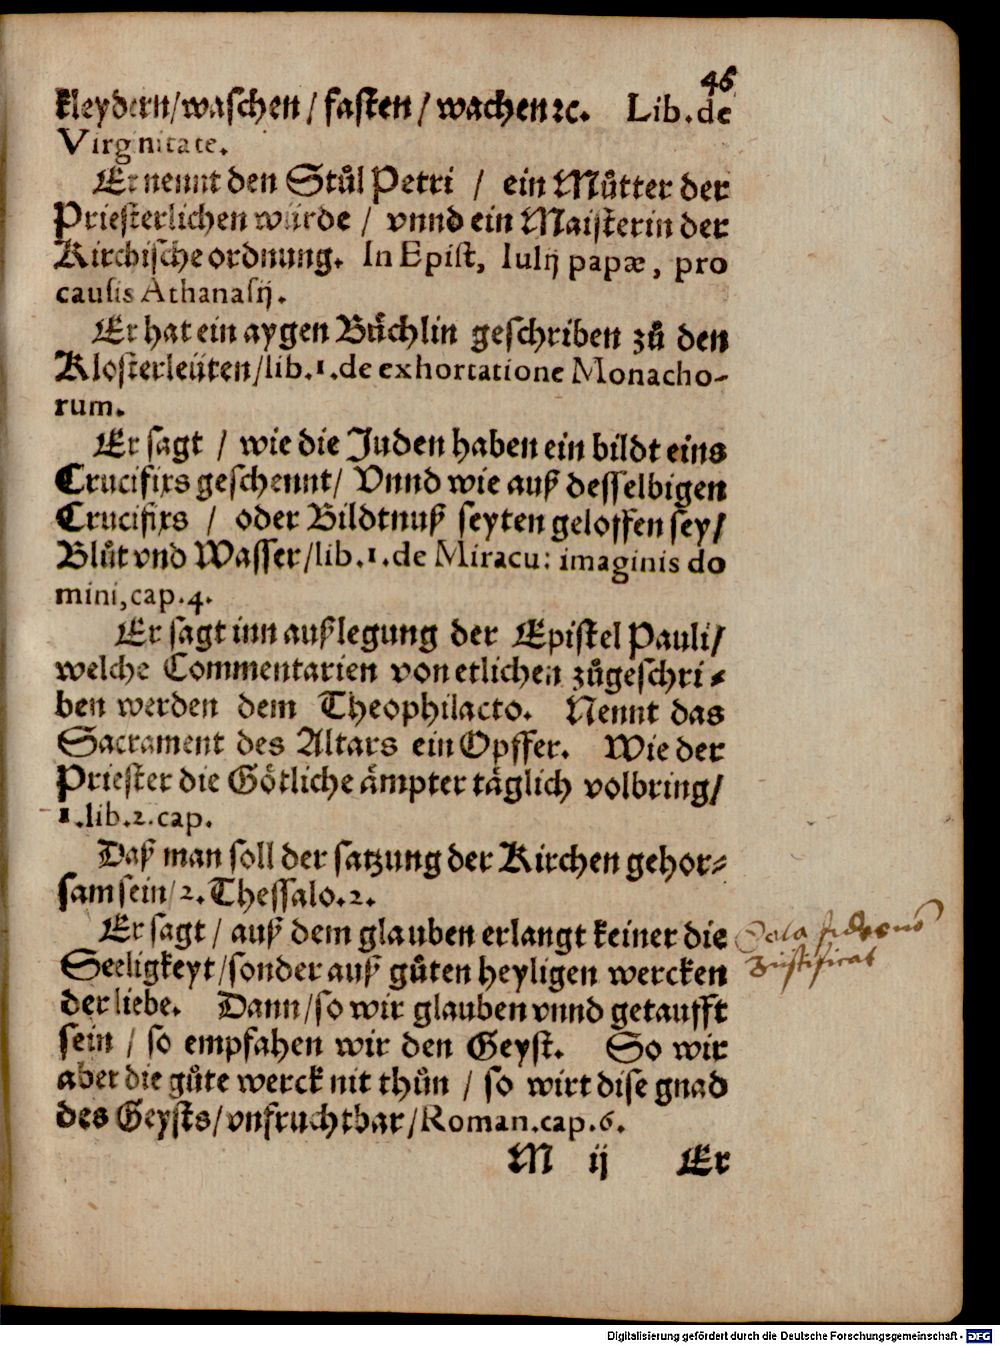 46
kleydern/waschen/ fasten/ wachen ꝛc. Lib. de
Virginitate.
Er nennt den Stůl Petri / ein Můtter der
Priesterlichen würde / vnnd ein Maisterin der
Kirchische ordnung. In Epist, Iulij papæ, pro
causis Athanasij.
Er hat ein aygen Bůchlin geschriben zů den
Klosterleüten/lib.1.de exhortatione Monacho-
rum.
Er sagt / wie die Juden haben ein bildt eins
Crucifixs geschennt/ Vnnd wie auß desselbigen
Crucifixs / oder Bildtnuß seyten geloffen sey/
Blůt vnd Wasser/lib.1.de Miracu: imaginis do
mini,cap.4.
Er sagt inn außlegung der Epistel Pauli/
welche Commentarien von etlichen zůgeschri-
ben werden dem Theophilacto. Nennt das
Sacrament des Altars ein Opffer. Wie der
Priester die Götliche ämpter täglich volbring/
1.lib.2.cap.
Daß man soll der satzung der Kirchen gehor-
sam sein/2.Thessalo.2.
Er sagt / auß dem glauben erlangt keiner die
Seeligkeyt/sonder auß gůten heyligen wercken
der liebe. Dann/so wir glauben vnnd getaufft
sein / so empfahen wir den Geyst. So wir
aber die gůte werck nit thůn / so wirt dise gnad
des Geysts/vnfruchtbar/Roman.cap.6.
M ij Er
Sola fides
Justificat
Digitalisierung gefördert durch die Deutsche Forschungsgemeinschaft - DFG